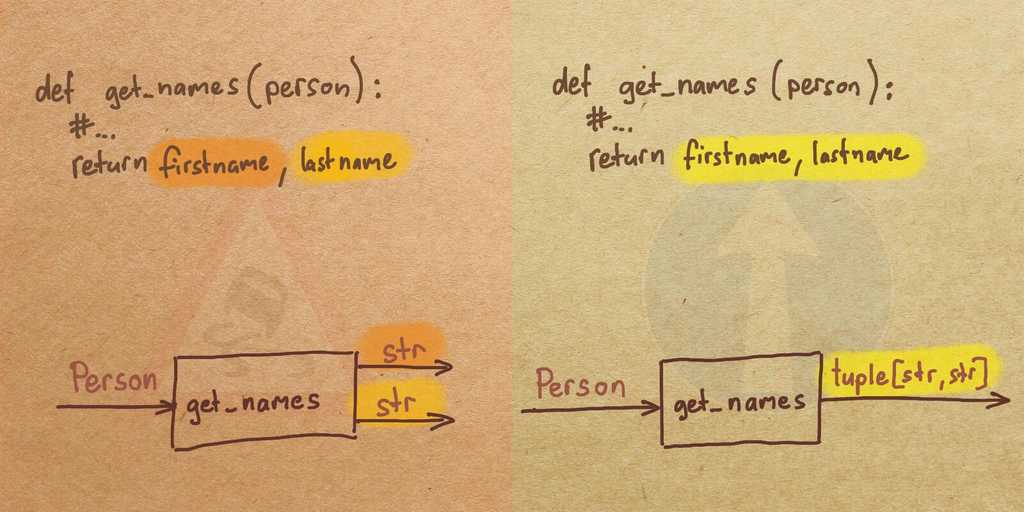 def get_names(person):
#...
return firstname, lastname
Person
get_names
str
str
def get_names (person):
#...
return firstname, lastname
Person
get_names
tuple[str, str]